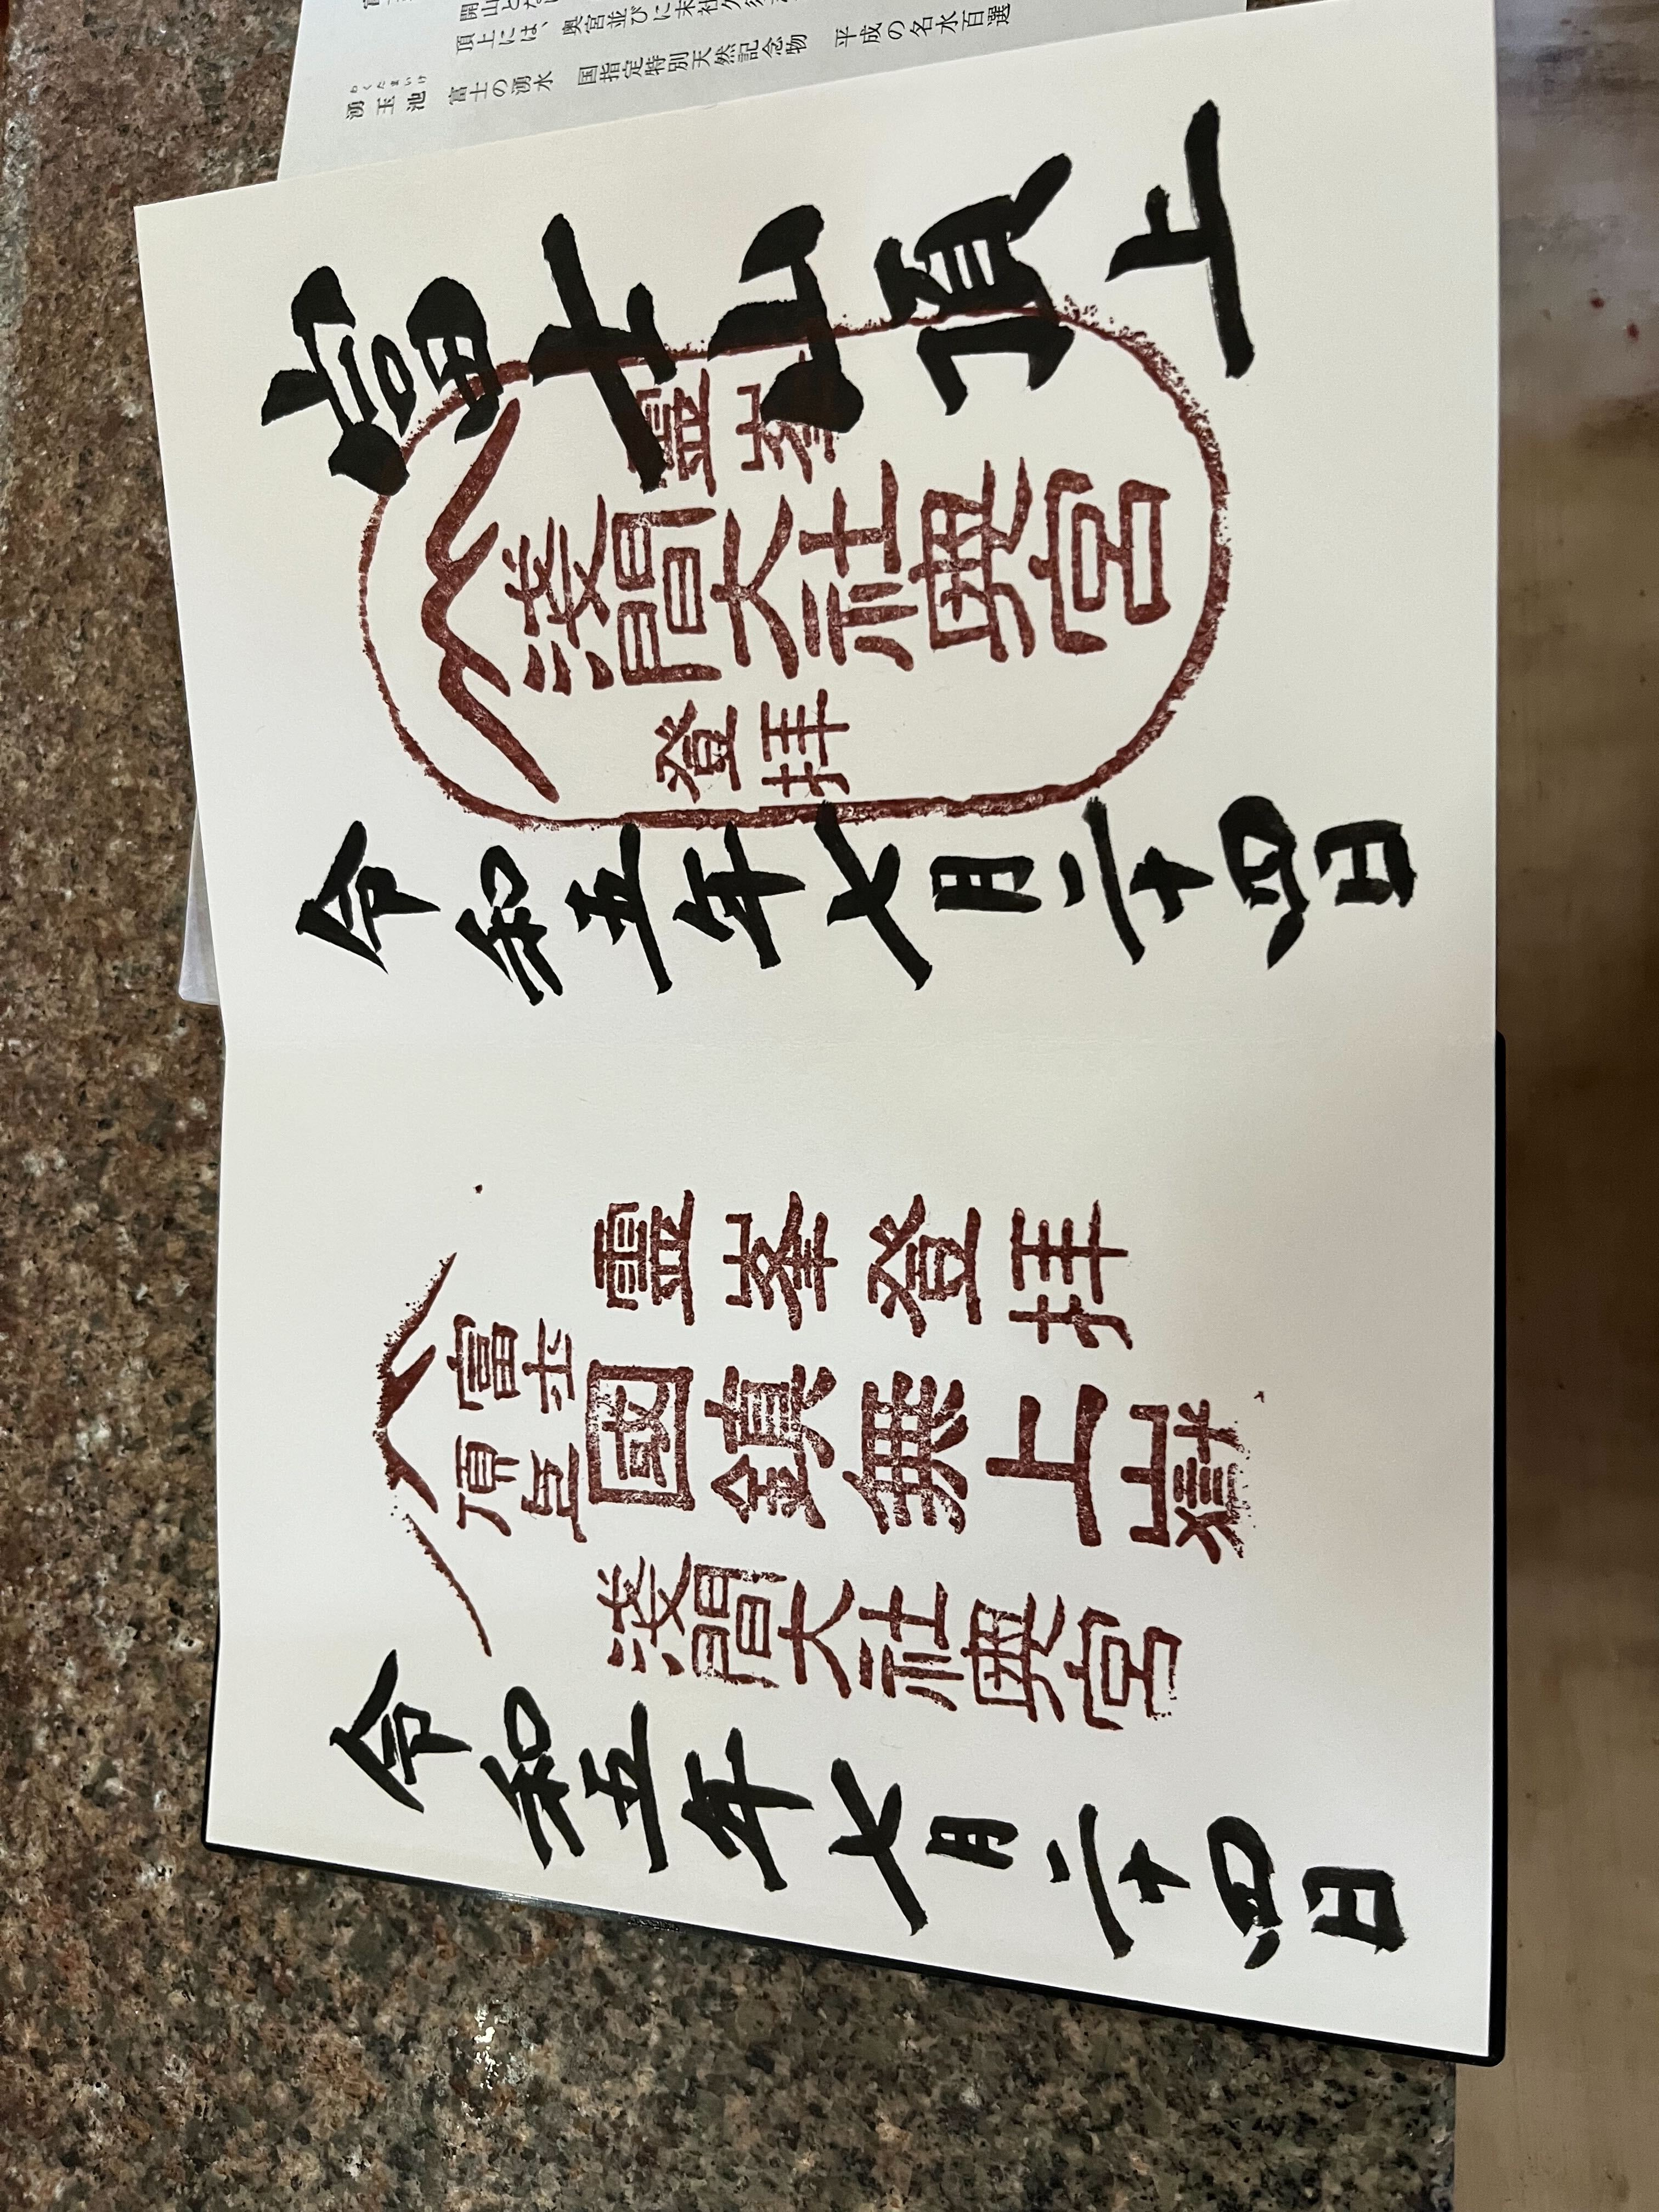 富士山頂上
靈峯
淺間大社奥宮
登拝
令和五年七月二十四日
靈峯登拝
富士
頂上
國鎮無上嶽
淺間大社奥宮
令和五年七月二十四日
頂上には、奥宮並びに末社久
わくたまいけ
湧玉池
富士の湧水
国指定特別天然記念物
平成の名水百選